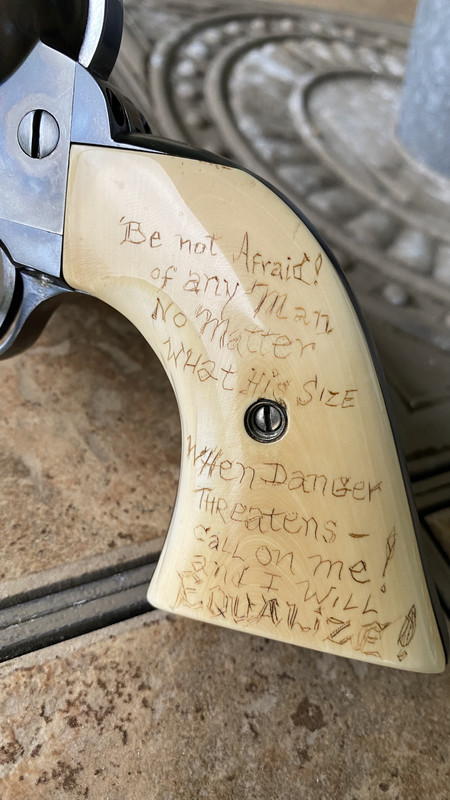 'Be not Afraid!
of any Man
No Matter
WHat His SIZE
WHen Danger
THREatens –
Call on me!
and I WILL
EQUALIZE!